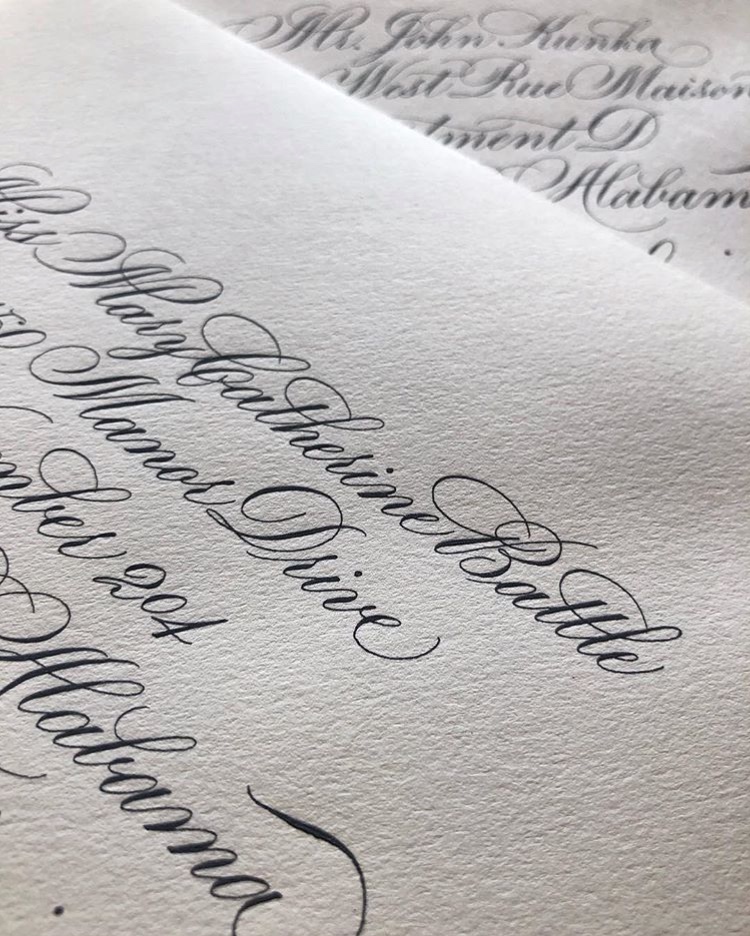 Mr. John Kunka
West Rue Maison
Alabam
Miss Mary Catherine Battle
Manor Drive
204
Alabama